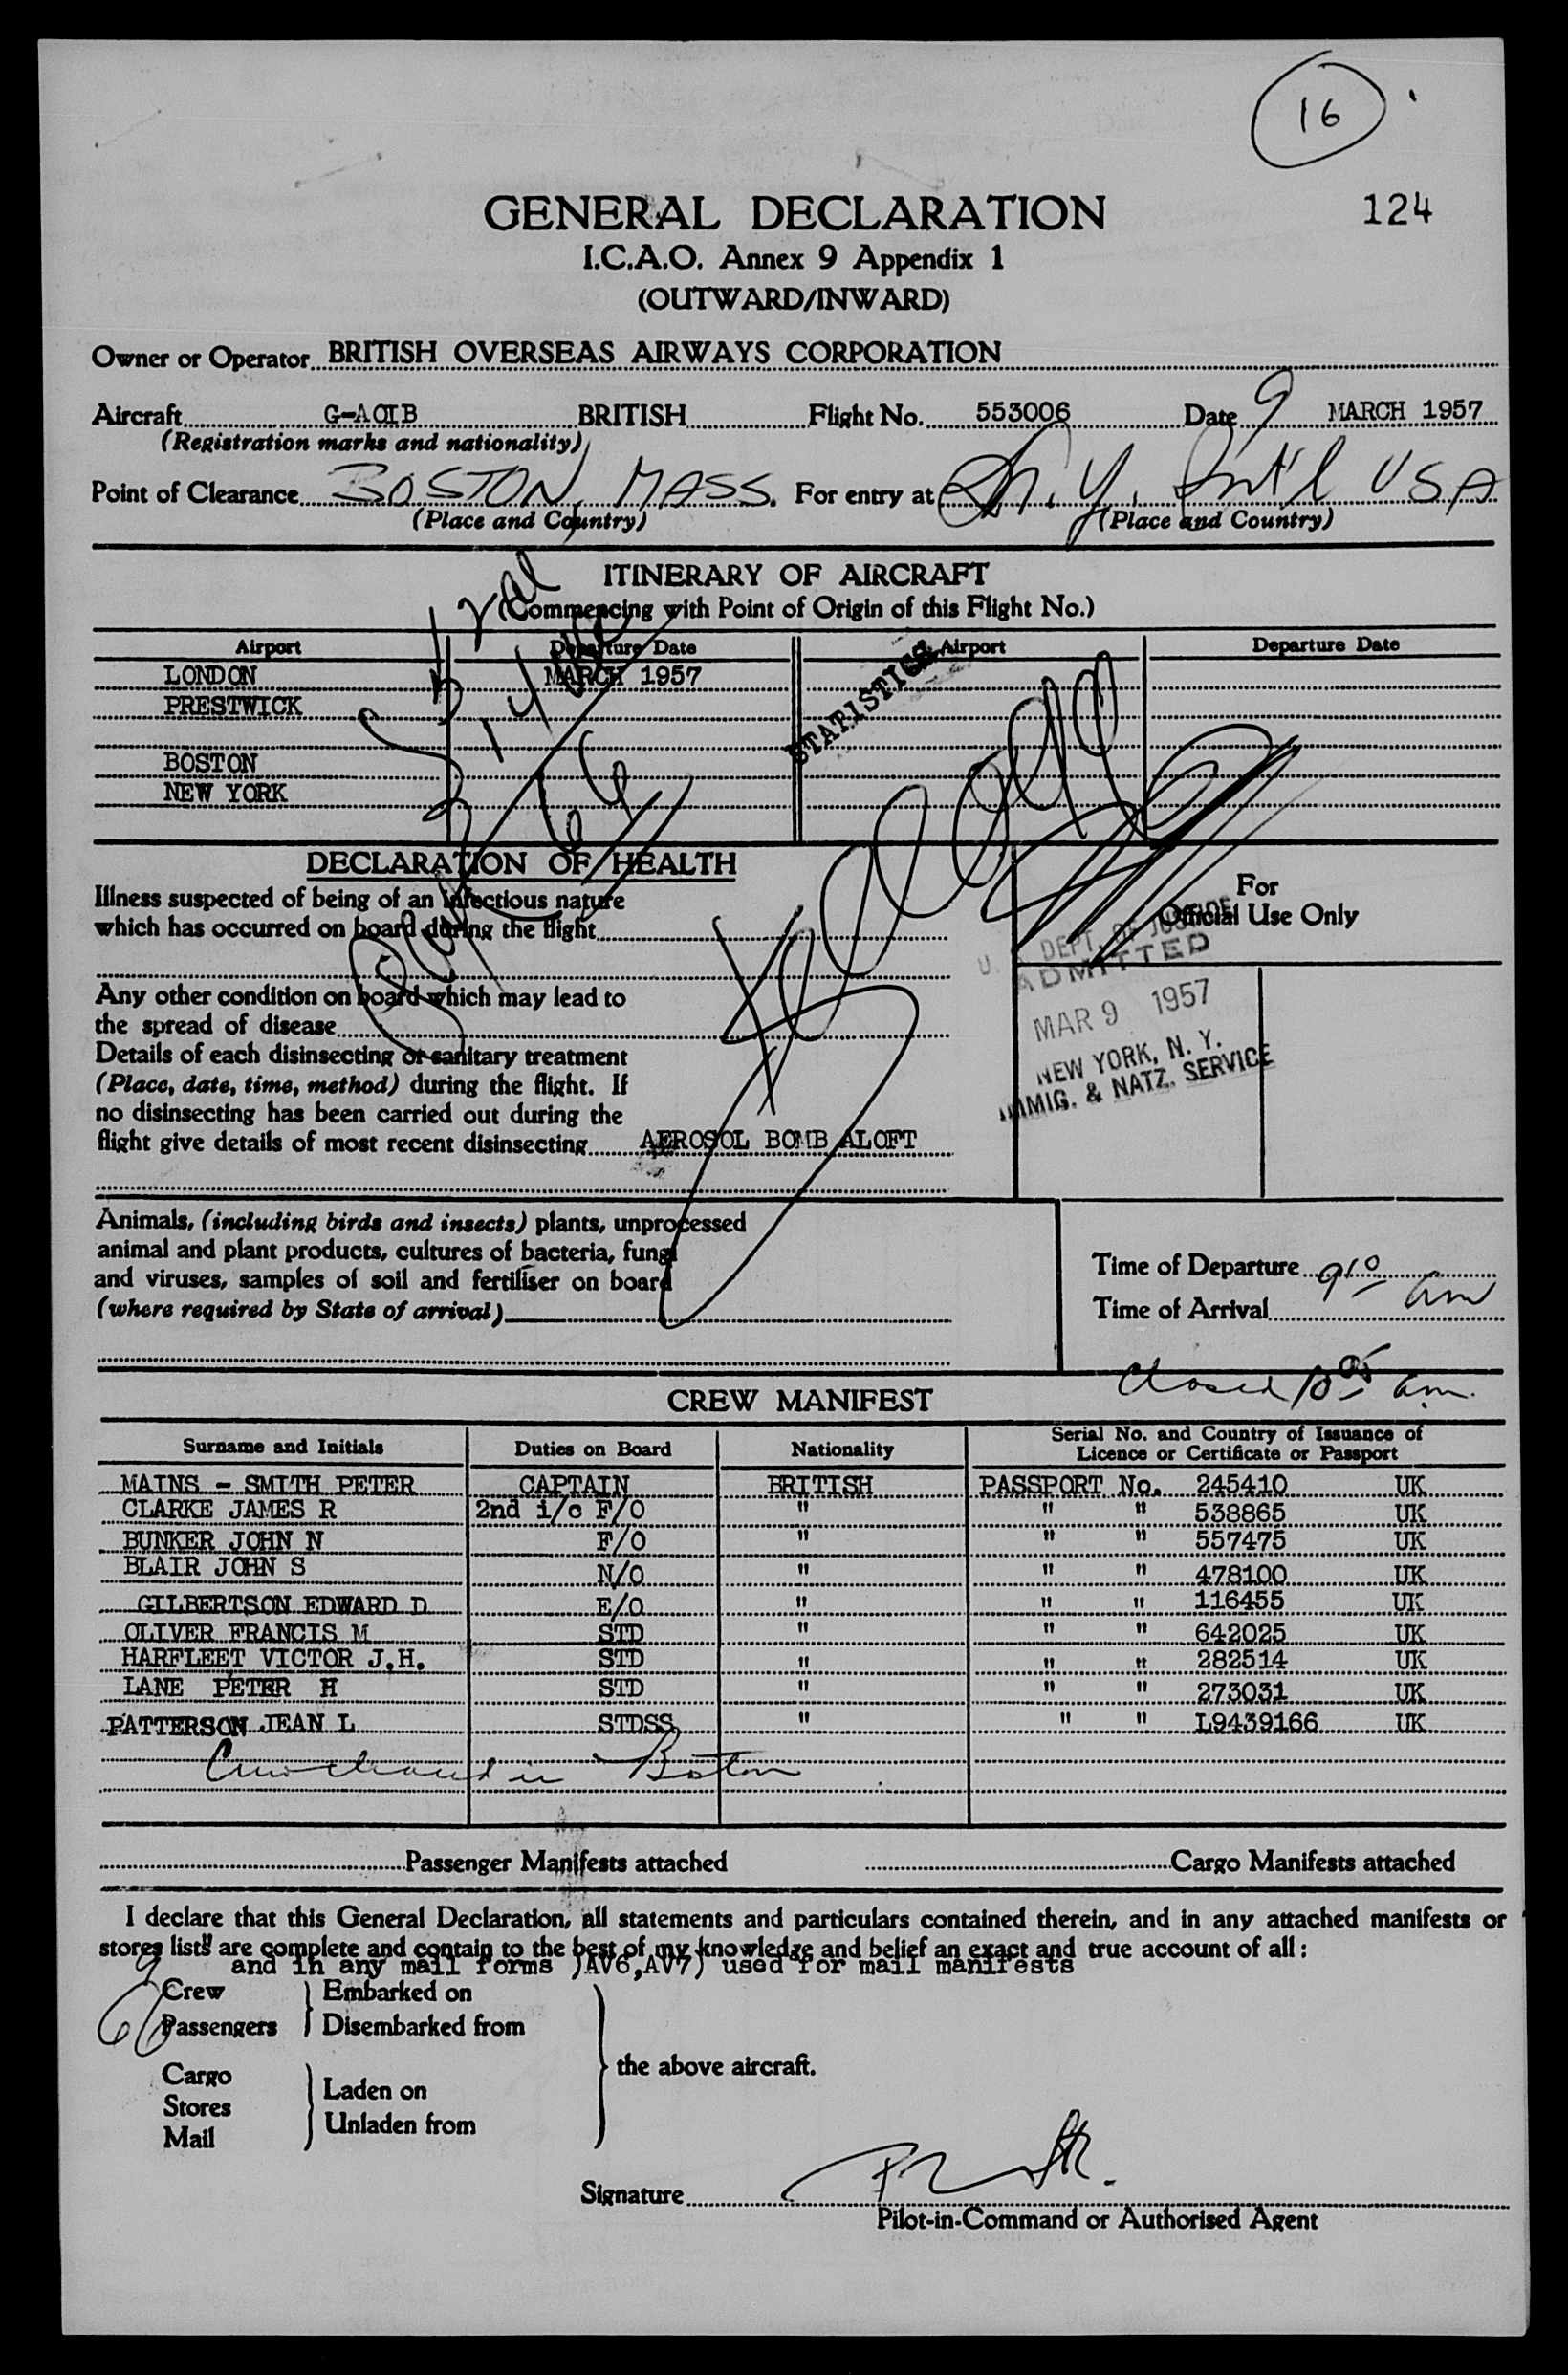 16
GENERAL DECLARATION 124
I.C.A.O. Annex 9 Appendix 1
(OUTWARD/INWARD)
Owner or Operator BRITISH OVERSEAS AIRWAYS CORPORATION
Aircraft G-AOIB BRITISH Flight No. 553006 Date 9 MARCH 1957
(Registration marks and nationality)
Point of Clearance BOSTON, MASS. For entry at N.Y. Int'l USA
(Place and Country) (Place and Country)
ITINERARY OF AIRCRAFT
(Commencing with Point of Origin of this Flight No.)
Airport Departure Date Airport Departure Date
LONDON MARCH 1957
PRESTWICK
STATISTICS
BOSTON
NEW YORK
DECLARATION OF HEALTH
Illness suspected of being of an infectious nature
which has occurred on board during the flight
Any other condition on board which may lead to
the spread of disease
Details of each disinsecting or sanitary treatment
(Place, date, time, method) during the flight. If
no disinsecting has been carried out during the
flight give details of most recent disinsecting AEROSOL BOMB ALOFT
For
Official Use Only
U. S. DEPT. OF JUSTICE
ADMITTED
MAR 9 1957
NEW YORK, N. Y.
IMMIG. & NATZ. SERVICE
Animals, (including birds and insects) plants, unprocessed
animal and plant products, cultures of bacteria, fungi
and viruses, samples of soil and fertiliser on board
(where required by State of arrival)
Time of Departure 9 10 am
Time of Arrival
Closed 10 05 am.
CREW MANIFEST
Surname and Initials Duties on Board Nationality Serial No. and Country of Issuance of Licence or Certificate or Passport
MAINS - SMITH PETER CAPTAIN BRITISH PASSPORT No. 245410 UK
CLARKE JAMES R 2nd i/c F/O " " " 538865 UK
BUNKER JOHN N F/O " " " 557475 UK
BLAIR JOHN S N/O " " " 478100 UK
GILBERTSON EDWARD D E/O " " " 116455 UK
OLIVER FRANCIS M STD " " " 642025 UK
HARFLEET VICTOR J.H. STD " " " 282514 UK
LANE PETER H STD " " " 273031 UK
PATTERSON JEAN L STDSS " " " L9439166 UK
in Boston
Passenger Manifests attached Cargo Manifests attached
I declare that this General Declaration, all statements and particulars contained therein, and in any attached manifests or
stores lists" are complete and contain to the best of my knowledge and belief an exact and true account of all:
and in any mail forms )AV6,AV7) used for mail manifests
9 Crew } Embarked on
Passengers } Disembarked from
the above aircraft.
Cargo
Stores
Mail
Laden on
Unladen from
Signature
Pilot-in-Command or Authorised Agent